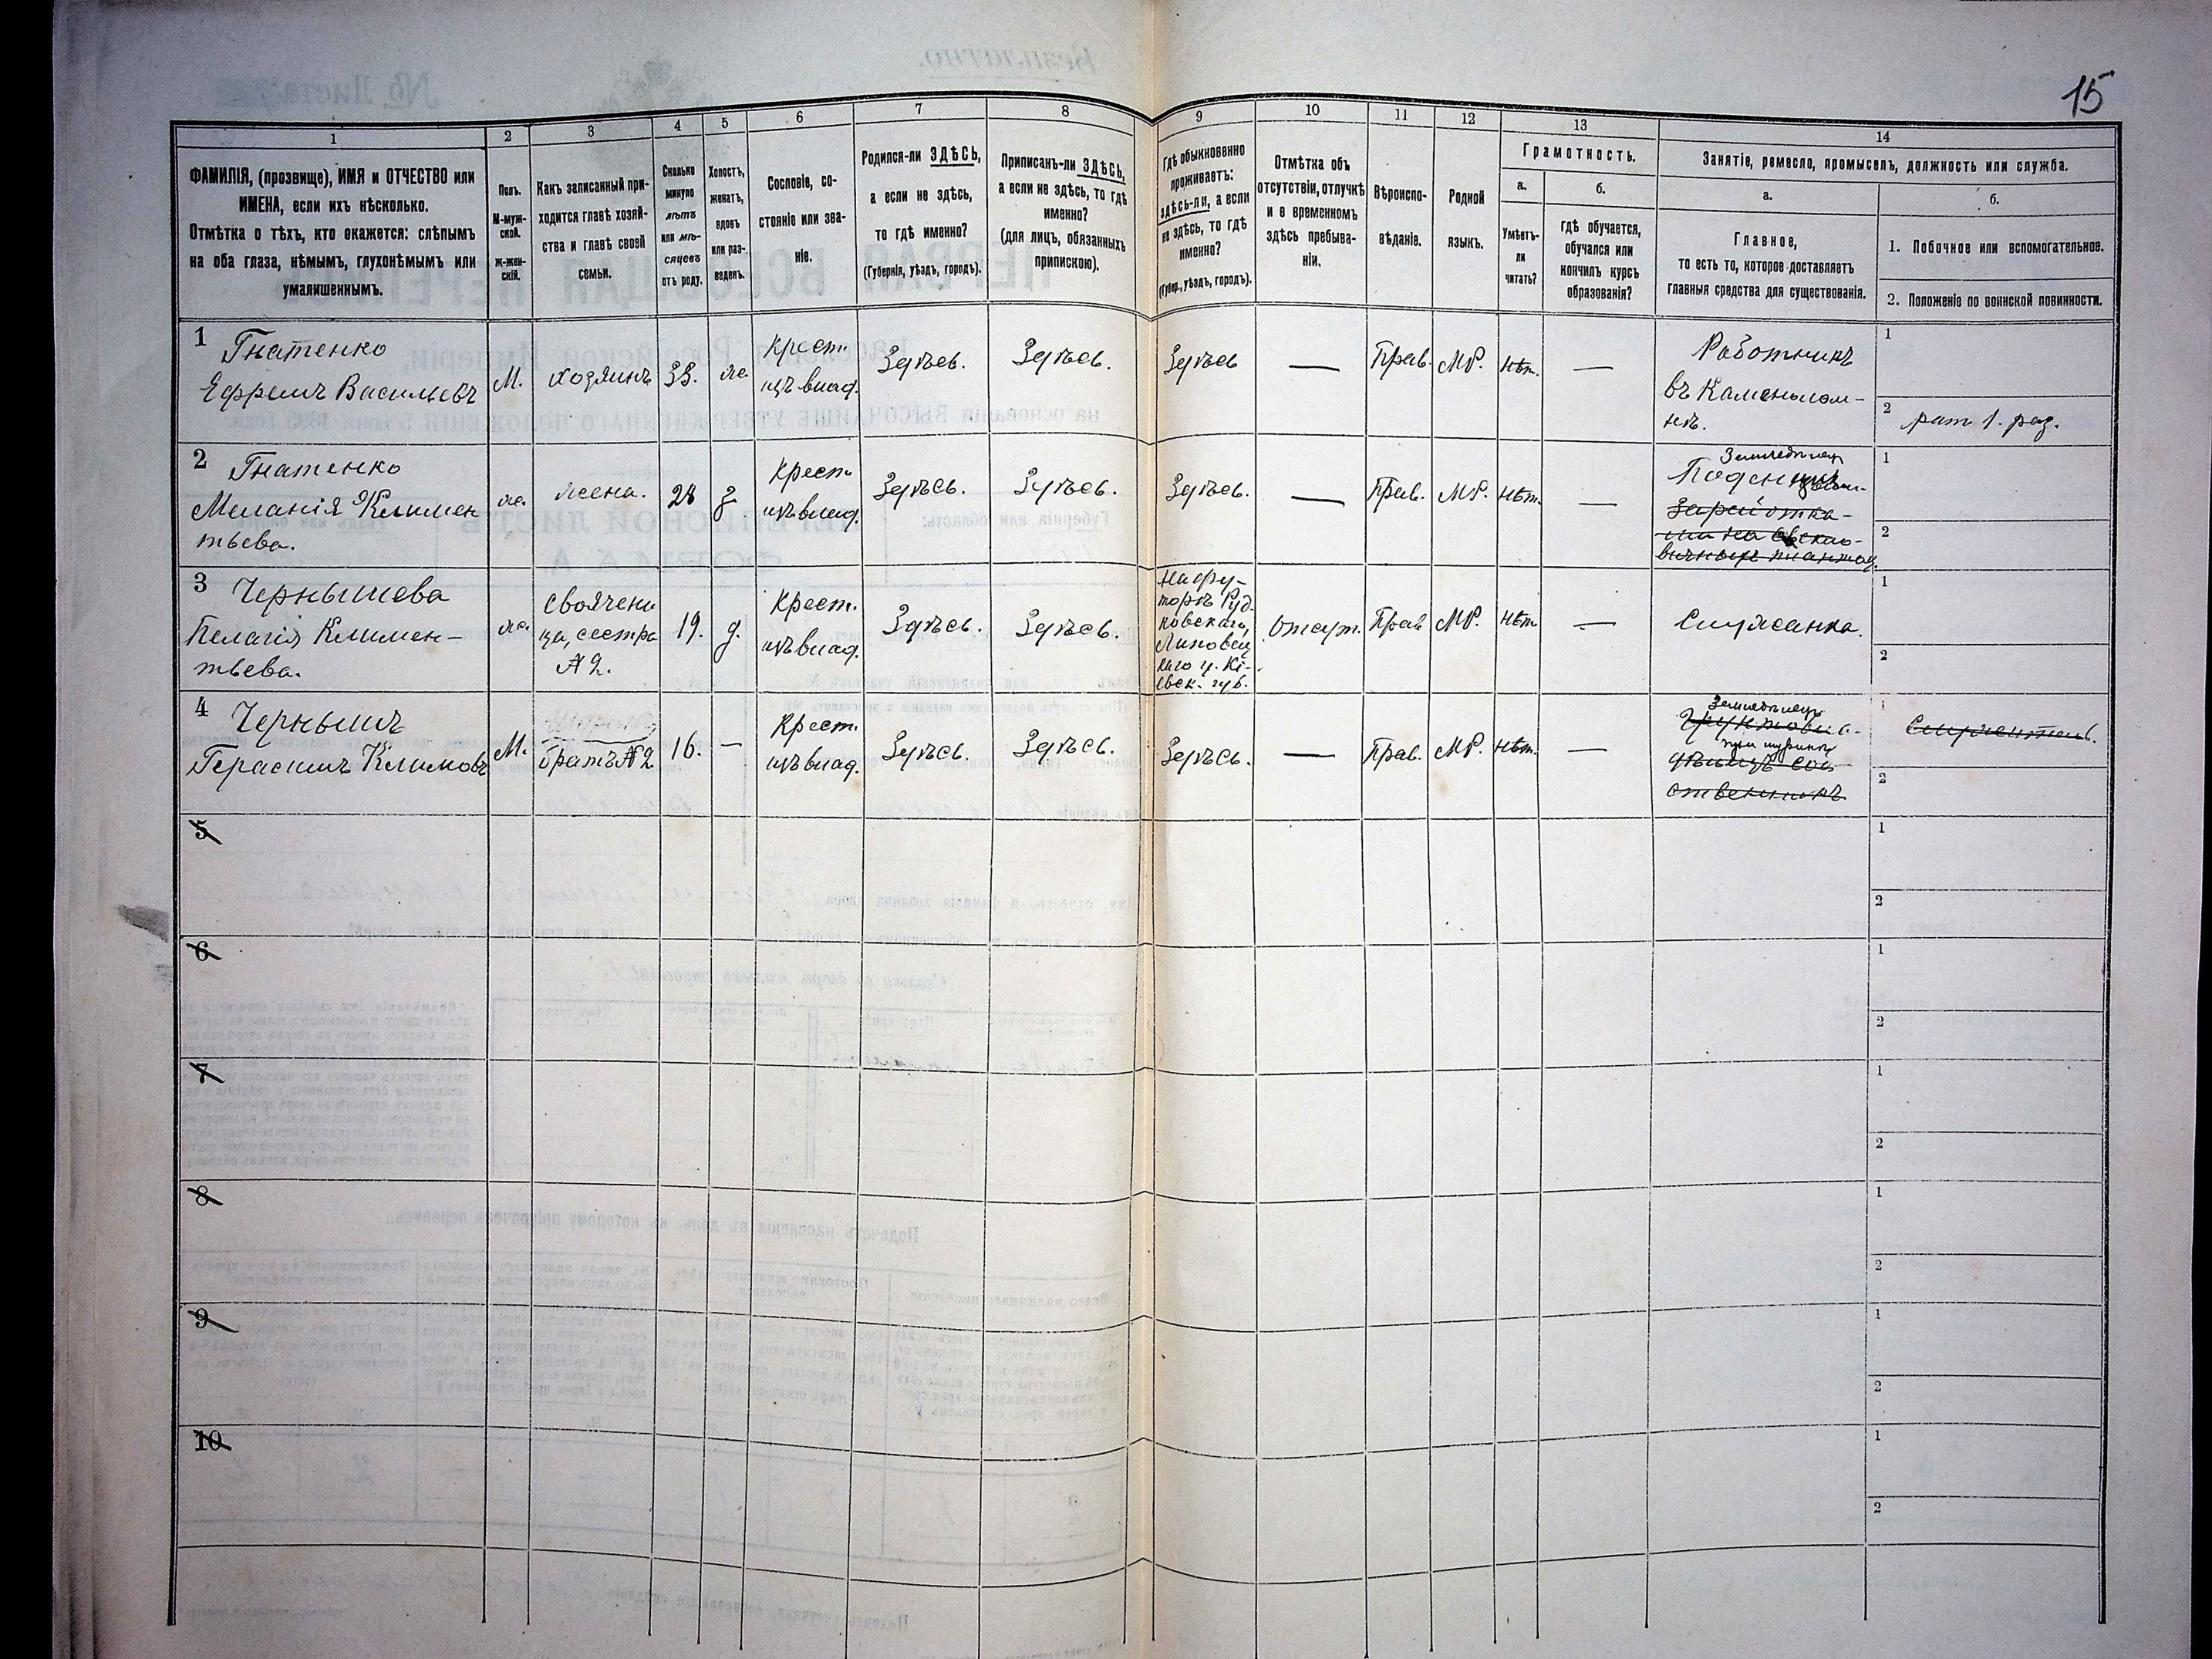 15
1 2 3 4 5 6 7 8 9 10 11 12 13 14
ФАМИЛІЯ, (прозвище), ИМЯ и ОТЧЕСТВО или
ИМЕНА, если ихъ нѣсколько.
Отмѣтка о тѣхъ, кто окажется: слѣпымъ
на оба глаза, нѣмымъ, глухонѣмымъ или
умалишеннымъ.
Полъ.
М-муж-
ской.
ж-жен-
скій.
Какъ записанный при-
ходится главѣ хозяй-
ства и главѣ своей
семьи.
Сколько
минуло
лѣтъ
или мѣ-
сяцевъ
отъ роду.
Холостъ,
женатъ,
вдовъ
или раз-
веденъ.
Сословіе, со-
стояніе или зва-
ніе.
Родился-ли ЗДѢСЬ,
а если не здѣсь,
то гдѣ именно?
(Губернія, уѣздъ, городъ).
Приписанъ-ли ЗДѢСЬ,
а если не здѣсь, то гдѣ
именно?
(для лицъ, обязанныхъ
припискою).
Гдѣ обыкновенно
проживаетъ:
здѣсь-ли, а если
не здѣсь, то гдѣ
именно?
(Губер., уѣздъ, городъ).
Отмѣтка объ
отсутствіи, отлучкѣ
и о временномъ
здѣсь пребыва-
ніи.
Вѣроиспо-
вѣданіе.
Родной
языкъ.
Грамотность.
а.
Умѣетъ-
ли
читать?
б.
гдѣ обучается,
обучался или
кончилъ курсъ
образованія?
Занятіе, ремесло, промыселъ, должность или служба.
а.
Главное,
то есть то, которое доставляетъ
главныя средства для существованія.
б.
1. Побочное или вспомогательное.
2. Положеніе по воинской повинности.
1 Гнатенко
Ефремъ Васильевъ
М.
хозяинъ
33.
ж
Крест.
изъ влад.
Здѣсь.
Здѣсь.
Здѣсь
—
Прав.
МР.
нѣт.
—
Работникъ
въ Каменолом-
нѣ.
1
2 рат 1. раз.
2 Гнатенко
Меланія Климен
тьева.
ж.
жена.
28
з
Крест.
изъ влад.
Здѣсь.
Здѣсь.
Здѣсь.
—
Прав.
МР.
нѣт.
—
Земледѣлец
Заработка-
1
2
3 Чернышева
Пелагія Климен-
тьева.
ж.
свояченица, сестра
№ 2.
19.
д.
Крест.
изъ влад.
Здѣсь.
Здѣсь.
На фу-
торѣ Руд-
ковскаго,
Липовец
каго у. Кі-
евск. губ.
Отсут.
Прав
МР.
нѣт
—
Служанка.
1
2
4 Чернышъ
Герасимъ Климовъ
М.
братъ № 2
16.
—
Крест.
изъ влад.
Здѣсь.
Здѣсь.
Здѣсь.
—
Прав.
МР.
нѣт.
—
Земледѣлецъ
при шуринѣ
ственникъ
1
2
5
1
2
6
1
2
7
1
2
8
1
2
9
1
2
10
1
2